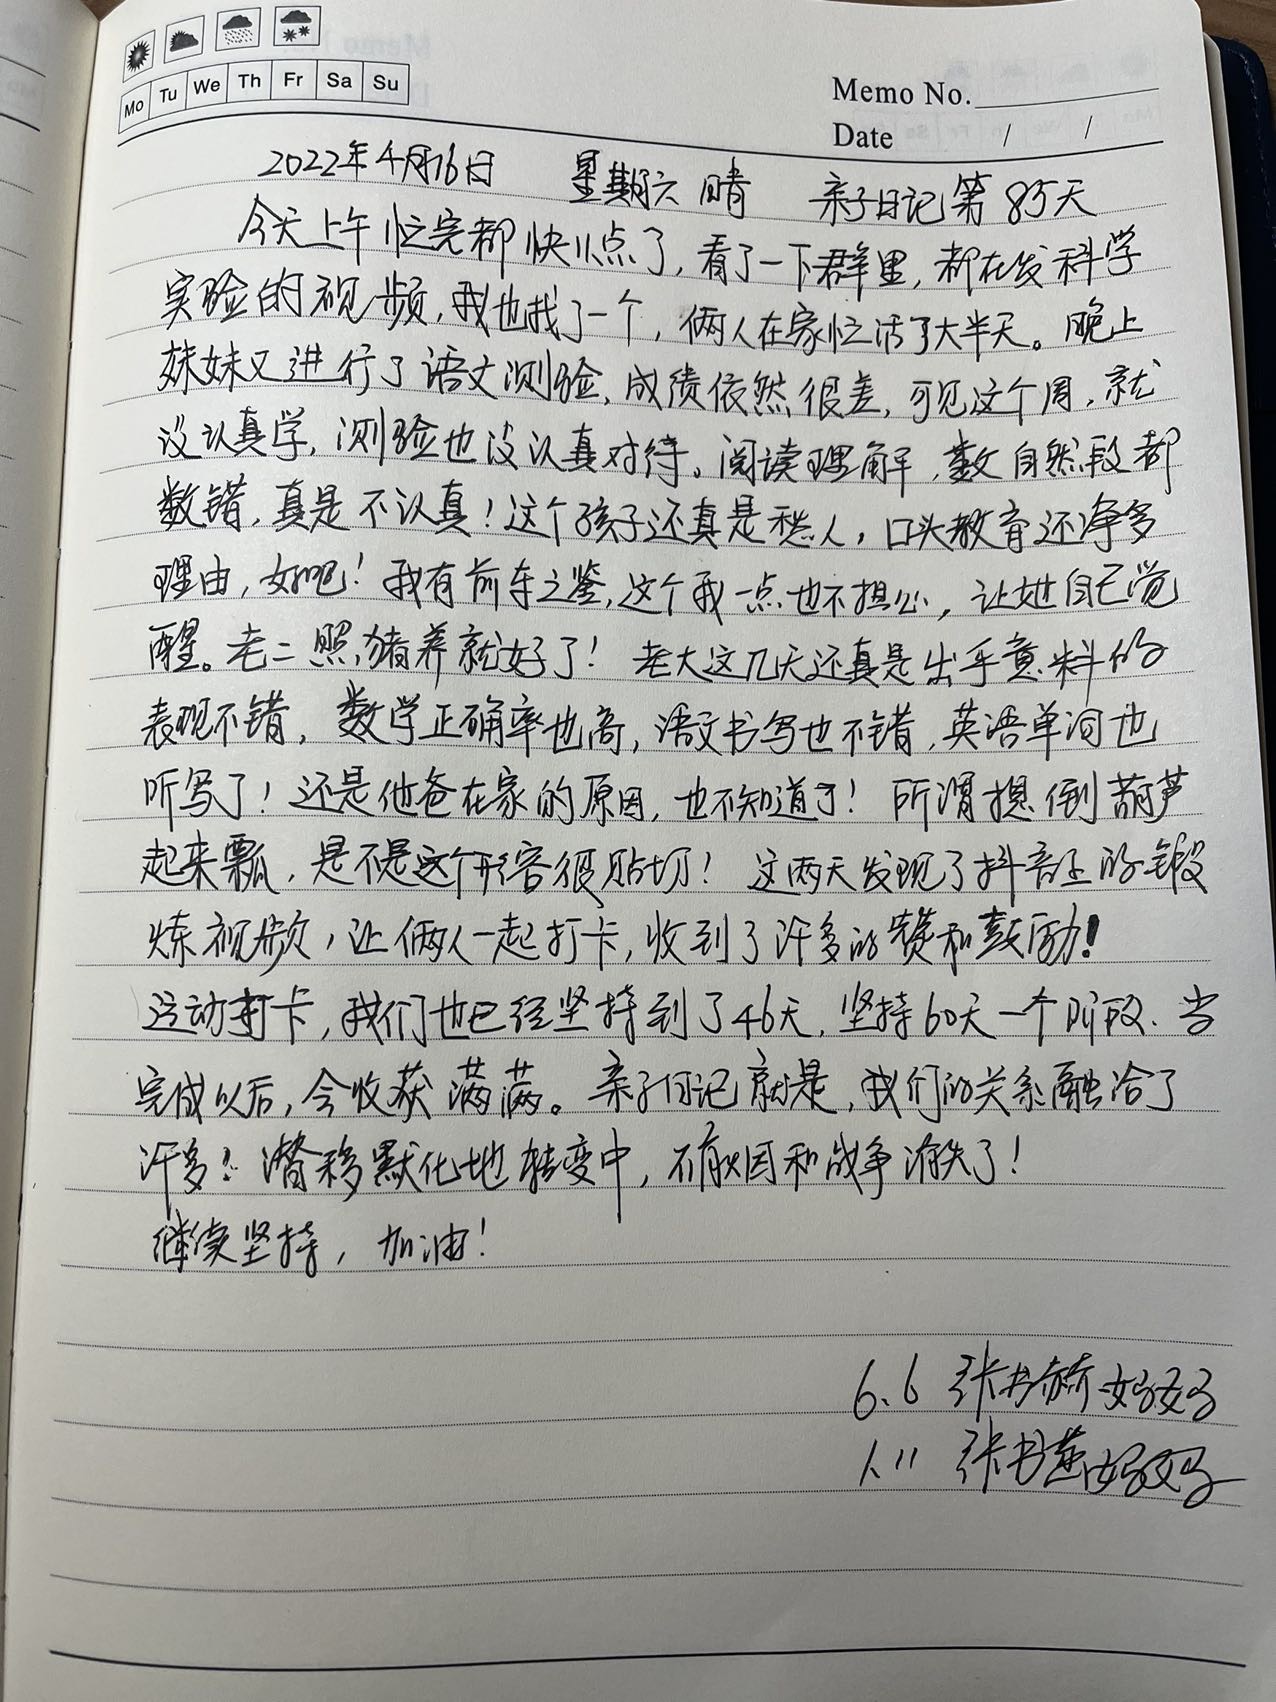 Mo Tu We Th Fr Sa Su
Memo No.
Date / /
2022年4月16日 星期六 晴 亲子日记第85天
今天上午忙完都快11点了,看了一下群里,都在发科学
实验的视频,我也找了一个,俩人在家忙活了大半天。晚上
妹妹又进行了语文测验,成绩依然很差,可见这个周,就
没认真学,测验也没认真对待。阅读理解,数自然段都
数错,真是不认真!这个孩子还真是愁人,口头教育还净多
理由,好吧!我有前车之鉴,这个我一点也不担心,让她自己觉
醒。老二照猪养就好了!老大这几天还真是出乎意料的
表现不错,数学正确率也高,语文书写也不错,英语单词也
听写了!还是他爸在家的原因,也不知道了!所谓摁倒葫芦
起来瓢,是不是这个形容很贴切!这两天发现了抖音上的锻
炼视频,让俩人一起打卡,收到了许多的赞和鼓励!
运动打卡,我们也已经坚持到了46天,坚持60天一个阶段.当
完成以后,会收获满满。亲子日记就是,我们的关系融洽了
许多!潜移默化地转变中,不有战争消失了!
继续坚持,加油!
6.6 张书 妈妈
1.11 张书 妈妈